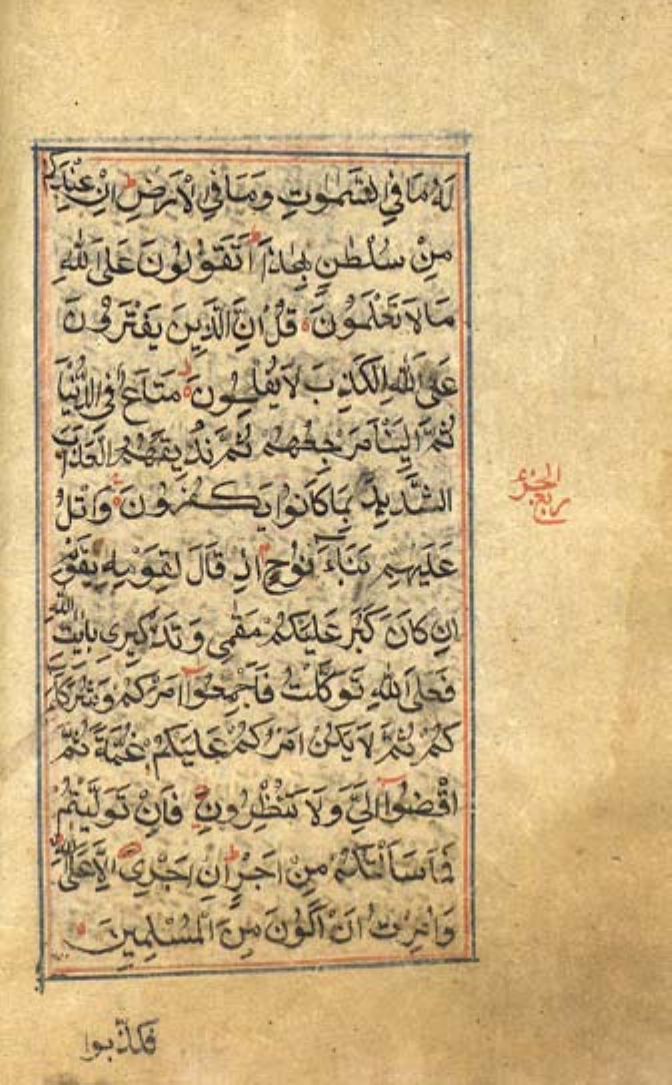 لَهُ مَا فِي السَّمٰوٰتِ وَمَا فِي الْاَرْضِ اِنْ عِنْدَكُمْ
مِنْ سُلْطٰنٍ بِهٰذَا اَتَقُوْلُوْنَ عَلَى اللهِ
مَا لَا تَعْلَمُوْنَ قُلْ اِنَّ الَّذِيْنَ يَفْتَرُوْنَ
عَلَى اللهِ الْكَذِبَ لَا يُفْلِحُوْنَ مَتَاعٌ فِي الدُّنْيَا
ثُمَّ اِلَيْنَا مَرْجِعُهُمْ ثُمَّ نُذِيْقُهُمُ الْعَذَابَ
الشَّدِيْدَ بِمَا كَانُوْا يَكْفُرُوْنَ وَاتْلُ
عَلَيْهِمْ نَبَاَ نُوْحٍ اِذْ قَالَ لِقَوْمِهٖ يٰقَوْمِ
اِنْ كَانَ كَبُرَ عَلَيْكُمْ مَقَامِيْ وَتَذْكِيْرِيْ بِاٰيٰتِ اللهِ
فَعَلَى اللهِ تَوَكَّلْتُ فَاَجْمِعُوْا اَمْرَكُمْ وَشُرَكَاءَ
كُمْ ثُمَّ لَا يَكُنْ اَمْرُكُمْ عَلَيْكُمْ غُمَّةً ثُمَّ
اقْضُوْا اِلَيَّ وَلَا تُنْظِرُوْنِ فَاِنْ تَوَلَّيْتُمْ
فَمَا سَاَلْتُكُمْ مِنْ اَجْرٍ اِنْ اَجْرِيَ اِلَّا عَلَى اللهِ
وَاُمِرْتُ اَنْ اَكُوْنَ مِنَ الْمُسْلِمِيْنَ
ربع الجزء
فَكَذَّبُوا